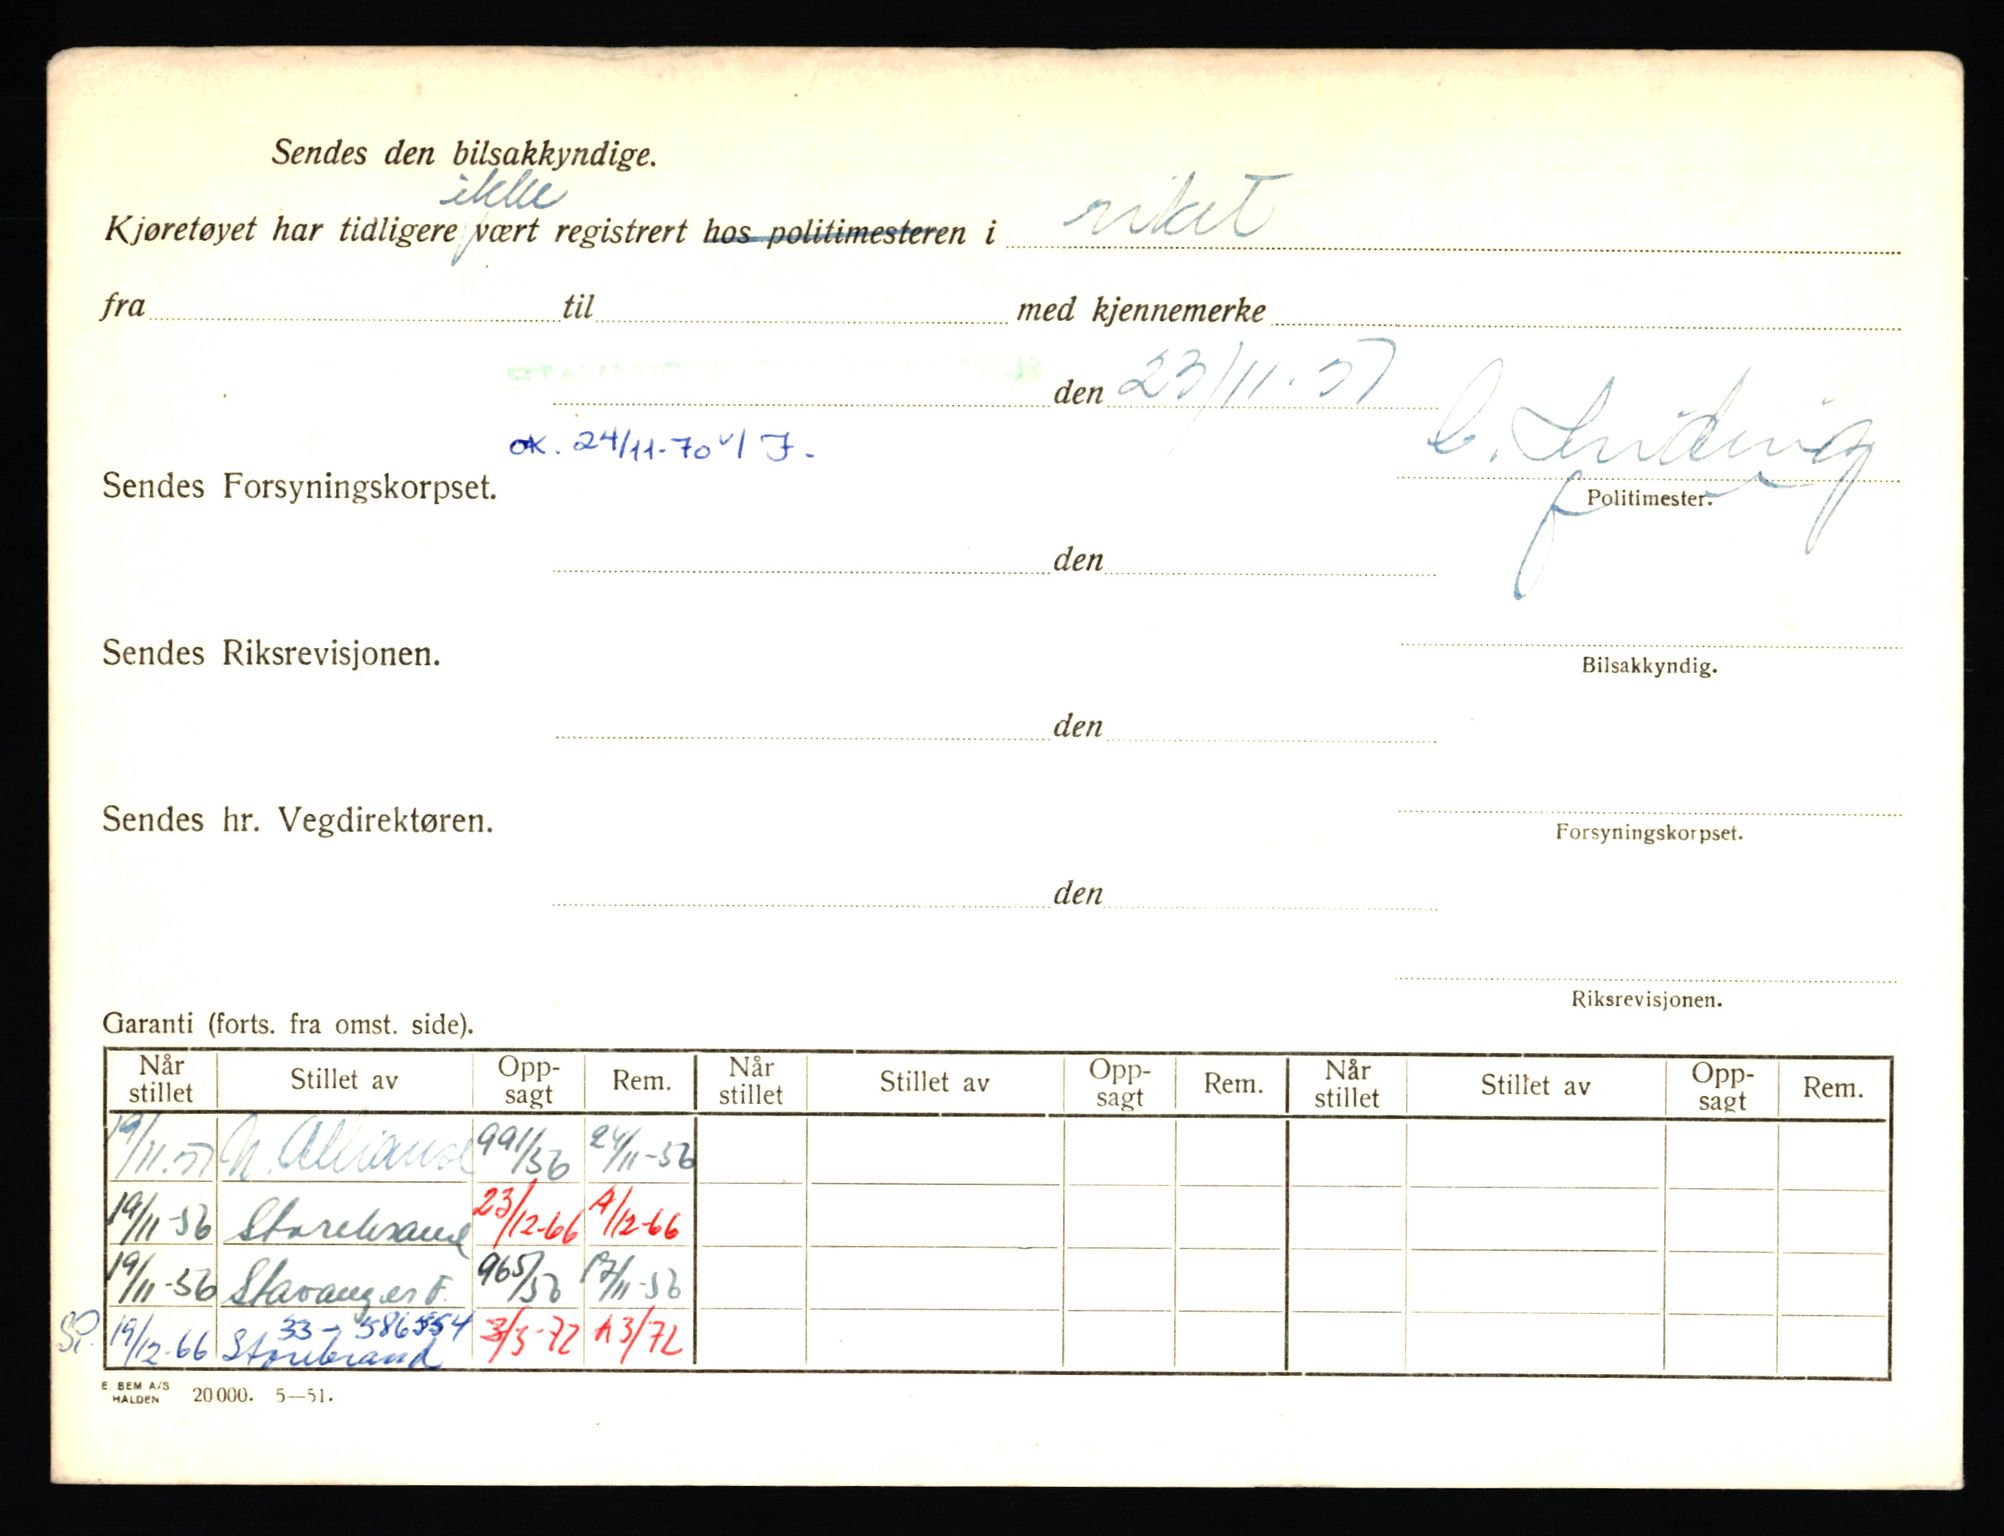 Sendes den bilsakkyndige.
ikke
Kjøretøyet har tidligere vært registrert hos politimesteren i riket
fra til med kjennemerke
den 23/11.51
OK. 24/11-70 v/ J.
Sendes Forsyningskorpset.
Politimester.
den
Sendes Riksrevisjonen.
Bilsakkyndig.
den
Sendes hr. Vegdirektøren.
Forsyningskorpset.
den
Riksrevisjonen.
Garanti (forts. fra omst. side).
Når stillet Stillet av Opp-sagt Rem. Når stillet Stillet av Opp-sagt Rem. Når stillet Stillet av Opp-sagt Rem.
19/11.51 N. Alliance 991/56 24/11-56
19/11-56 Storebrand 23/12-66 A/12-66
19/11-56 Stavanger F. 965/56 17/11-56
33-586554
19/12-66 Storebrand 3/3-72 A 3/72
E. BEM A/S
HALDEN 20000. 5—51.